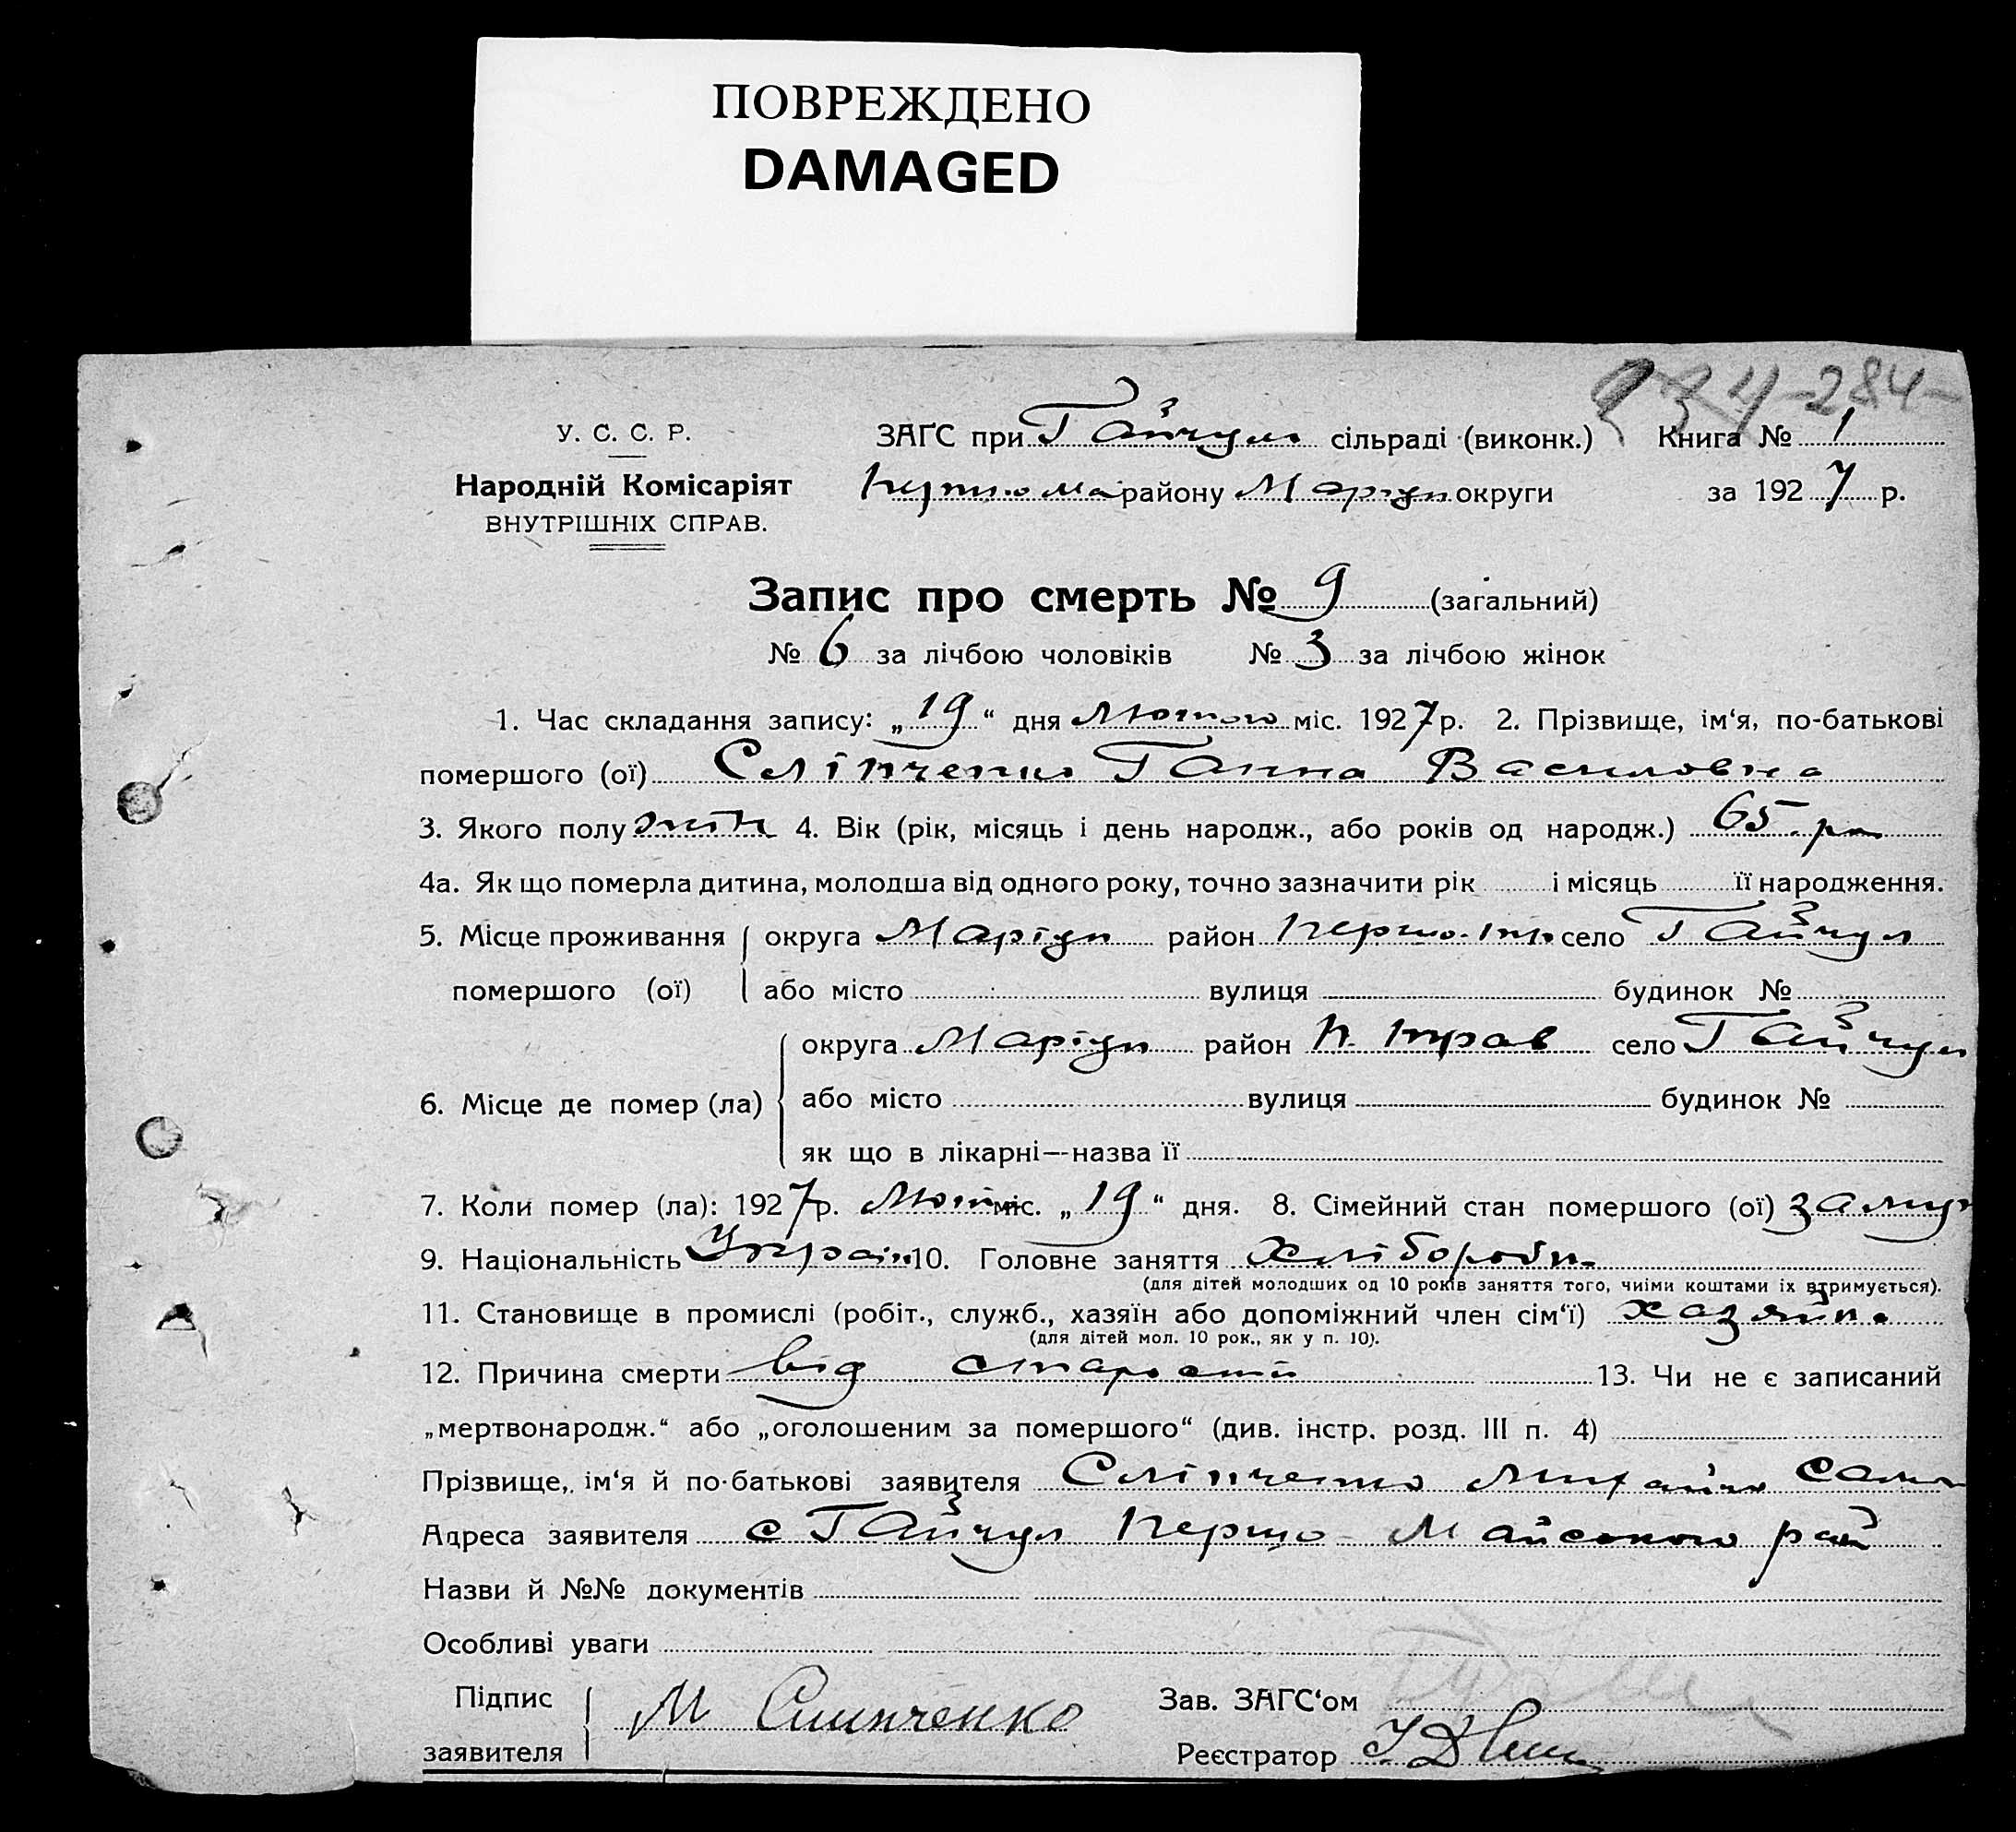 ПОВРЕЖДЕНО
DAMAGED
284-
У. С. С. Р.
Народній Комісаріят
ВНУТРІШНІХ СПРАВ.
ЗАҐС при Гайчул сільраді (виконк.) Книга № 1
району Маріуп округи за 1927 р.
Запис про смерть № 9 (загальний)
№ 6 за лічбою чоловіків № 3 за лічбою жінок
1. Час складання запису: „19“ дня Лютого міс. 1927 р. 2. Прізвище, ім‘я, по-батькові
помершого (ої) Сліпченко Ганна Василовна
3. Якого полу жін 4. Вік (рік, місяць і день народж., або років од народж.) 65 рок
4а. Як що померла дитина, молодша від одного року, точно зазначити рік і місяць її народження.
5. Місце проживання помершого (ої) округа Маріуп район село Гайчул
або місто вулиця будинок №
6. Місце де помер (ла) округа Маріуп район П. трав село Гайчул
або місто вулиця будинок №
як що в лікарні—назва її
7. Коли помер (ла): 1927 р. Лют міс. „19“ дня. 8. Сімейний стан помершого (ої) замуж
9. Національність Україн 10. Головне заняття Хлібороб
(для дітей молодших од 10 років заняття того, чиїми коштами їх втримується).
11. Становище в промислі (робіт., служб., хазяїн або допоміжний член сім‘ї) хазяйка
(для дітей мол. 10 рок., як у п. 10).
12. Причина смерти від старости 13. Чи не є записаний
„мертвонародж.“ або „оголошеним за помершого“ (див. інстр. розд. III п. 4)
Прізвище, ім‘я й по-батькові заявителя Сліпченко Михайло
Адреса заявителя с Гайчул Першо-Майського рай
Назви й №№ документів
Особливі уваги
Підпис заявителя М Слипченко
Зав. ЗАҐС‘ом
Реєстратор